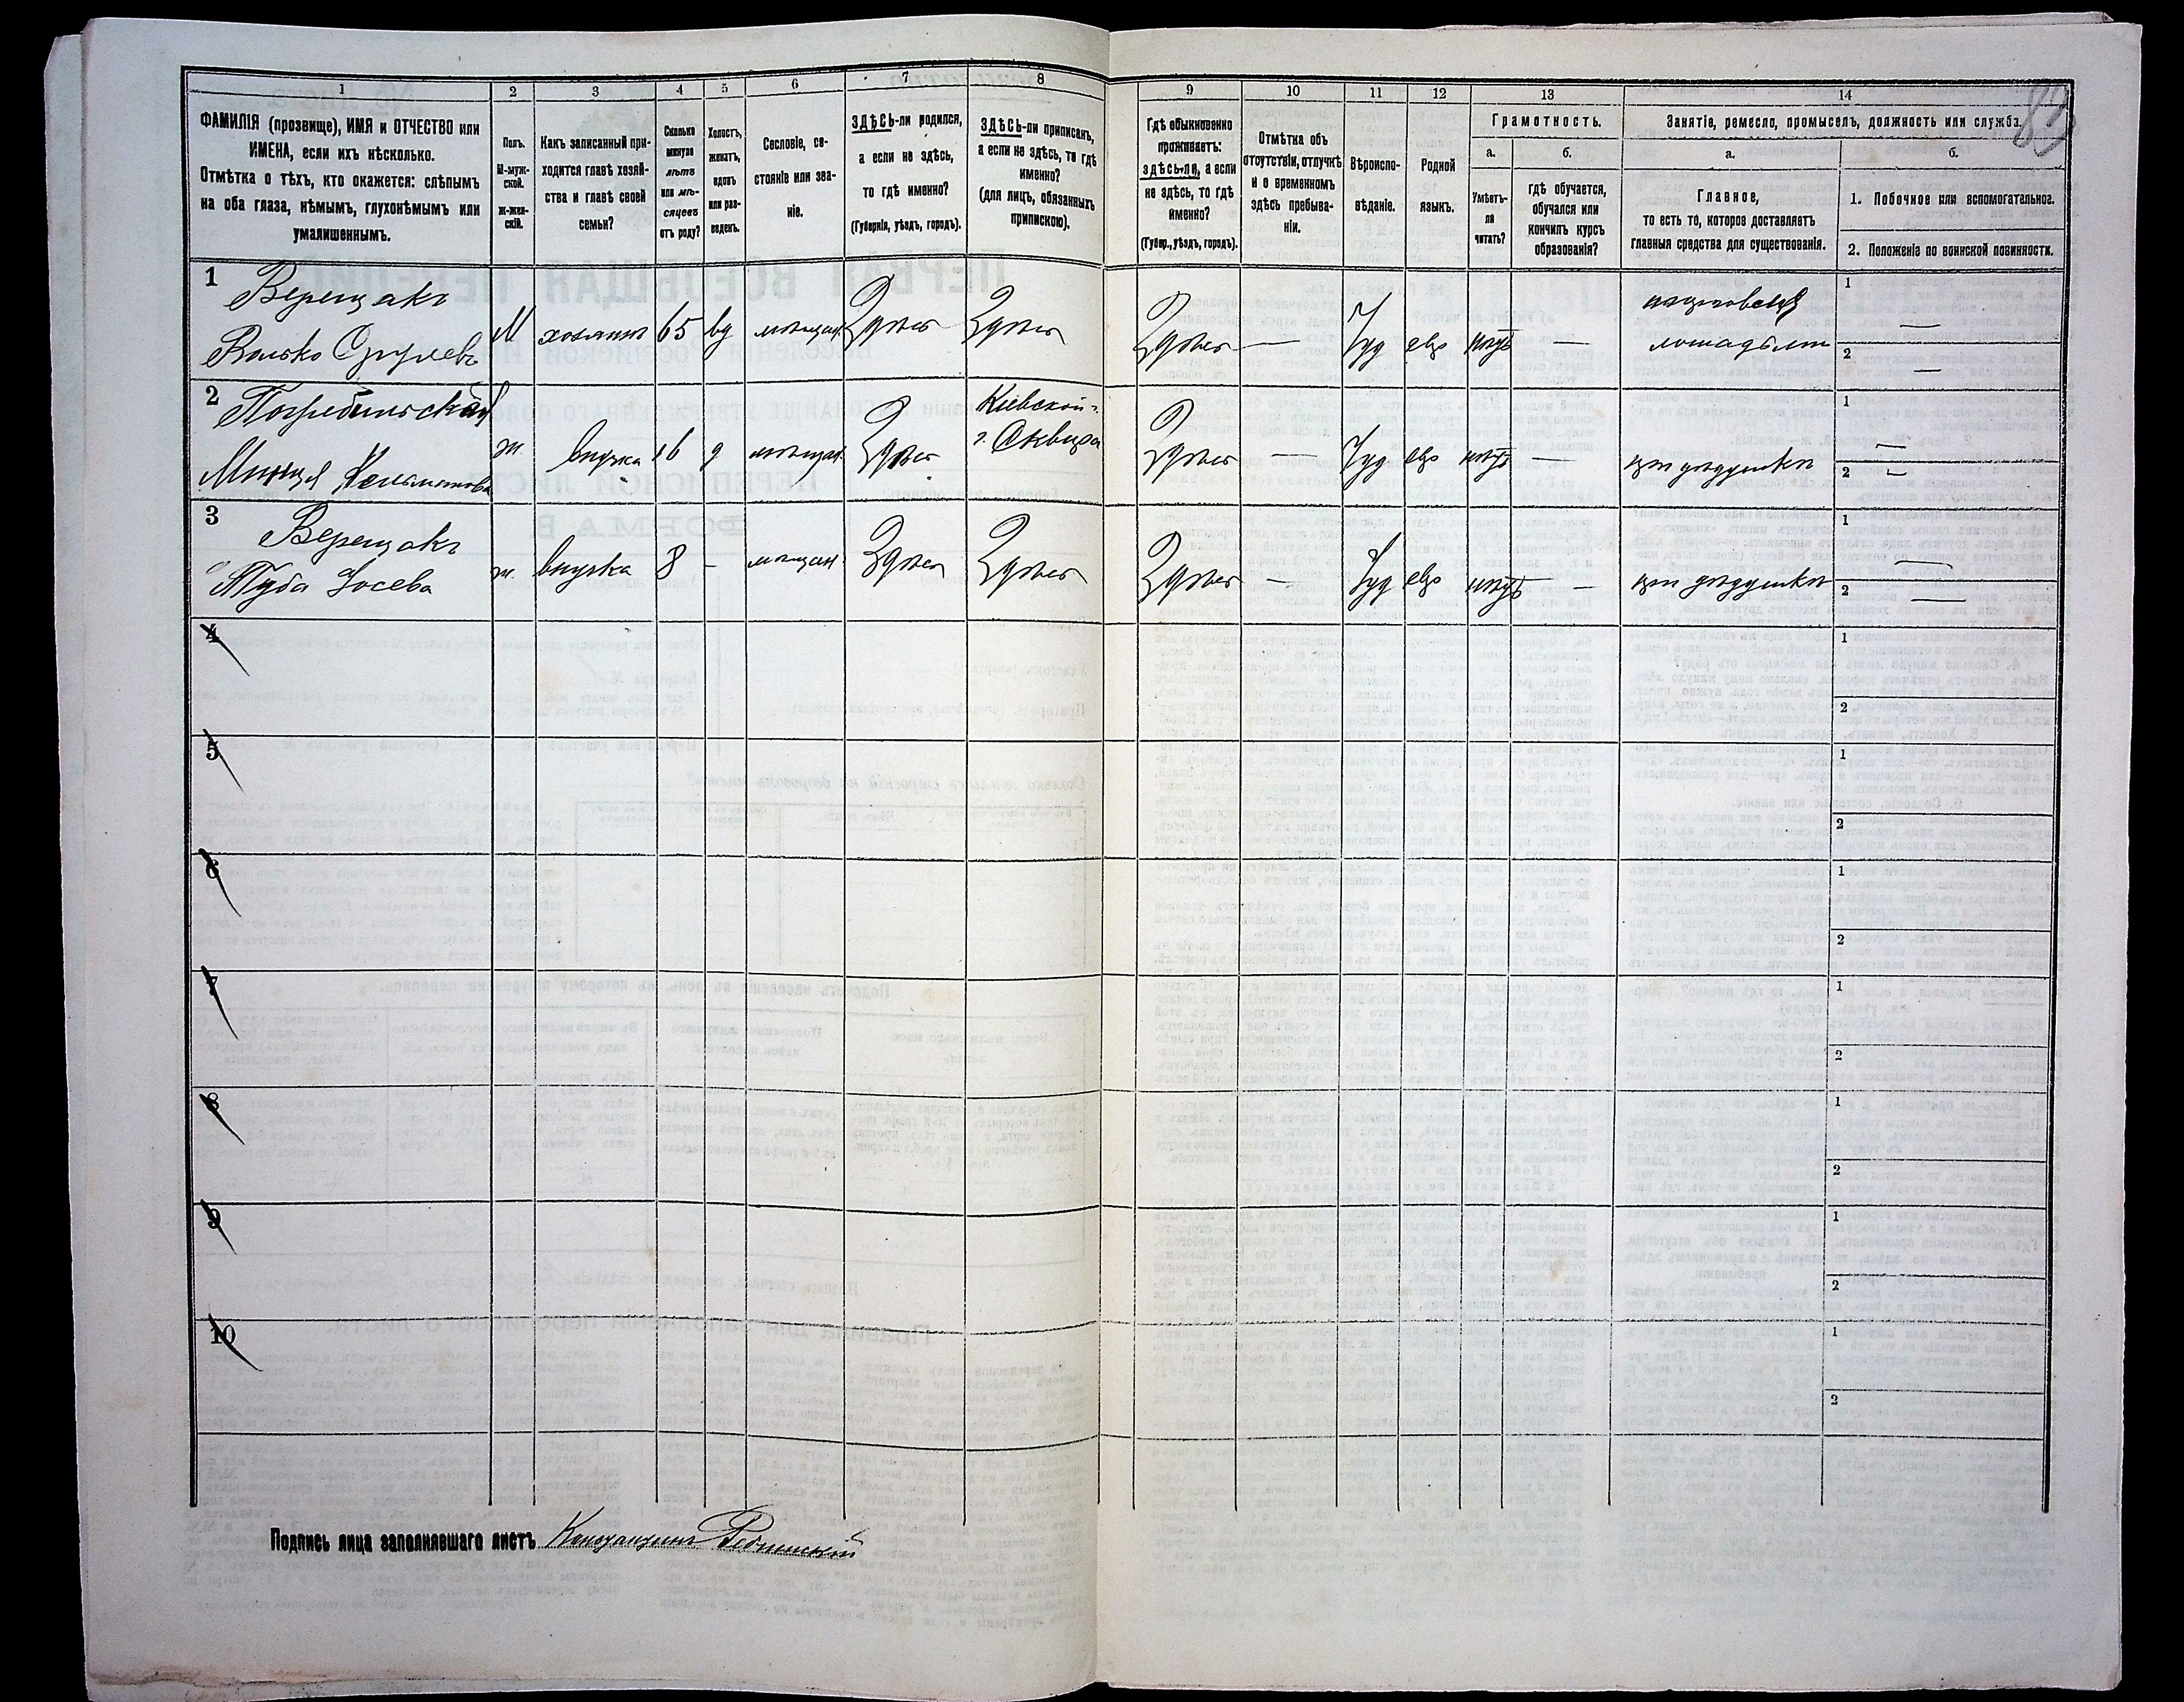 83
1 2 3 4 5 6 7 8 9 10 11 12 13 14
ФАМИЛІЯ (прозвище), ИМЯ и ОТЧЕСТВО или
ИМЕНА, если ихъ нѣсколько.
Отмѣтка о тѣхъ, кто окажется: слѣпымъ
на оба глаза, нѣмымъ, глухонѣмымъ или
умалишеннымъ.
Полъ.
М-муж-
ской.
Ж-жен-
скій.
Какъ записанный при-
ходится главѣ хозяй-
ства и главѣ своей
семьи?
Сколько
минуло
лѣтъ
или мѣ-
сяцевъ
отъ роду?
Холостъ,
женатъ,
вдовъ
или раз-
веденъ.
Сословіе, со-
стояніе или зва-
ніе.
ЗДѢСЬ-ли родился,
а если не здѣсь,
то гдѣ именно?
(Губернія, уѣздъ, городъ).
ЗДѢСЬ-ли приписанъ,
а если не здѣсь, то гдѣ
именно?
(для лицъ, обязанныхъ
припискою).
Гдѣ обыкновенно
проживаетъ:
здѣсь-ли, а если
не здѣсь, то гдѣ
именно?
(Губер., уѣздъ, городъ).
Отмѣтка объ
отсутствіи, отлучкѣ
и о временномъ
здѣсь пребыва-
ніи.
Вѣроиспо-
вѣданіе.
Родной
языкъ.
Грамотность.
а.
Умѣетъ-
ли
читать?
б.
гдѣ обучается,
обучался или
кончилъ курсъ
образованія?
Занятіе, ремесло, промыселъ, должность или служба.
а.
Главное,
то есть то, которое доставляетъ
главныя средства для существованія.
б.
1. Побочное или вспомогательное.
2. Положеніе по воинской повинности.
1 Верещакъ
Волько Сруулевъ М хозяинъ 65 вд мѣщан. Здѣсь Здѣсь Здѣсь — Іуд евр нѣтъ — лошадьми
1 —
2 —
2 Погребильская
Минця ж внучка 16 д мѣщан. Здѣсь Кіевской г.
г. Сквира Здѣсь — Іуд евр нѣтъ — при дѣдушкѣ
1 —
2 —
3 Верещакъ
Туба Іосева ж внучка 8 – мѣщан. Здѣсь Здѣсь Здѣсь — Іуд евр нѣтъ — при дѣдушкѣ
1 —
2 —
4
1
2
5
1
2
6
1
2
7
1
2
8
1
2
9
1
2
10
1
2
Подпись лица заполнявшаго листъ